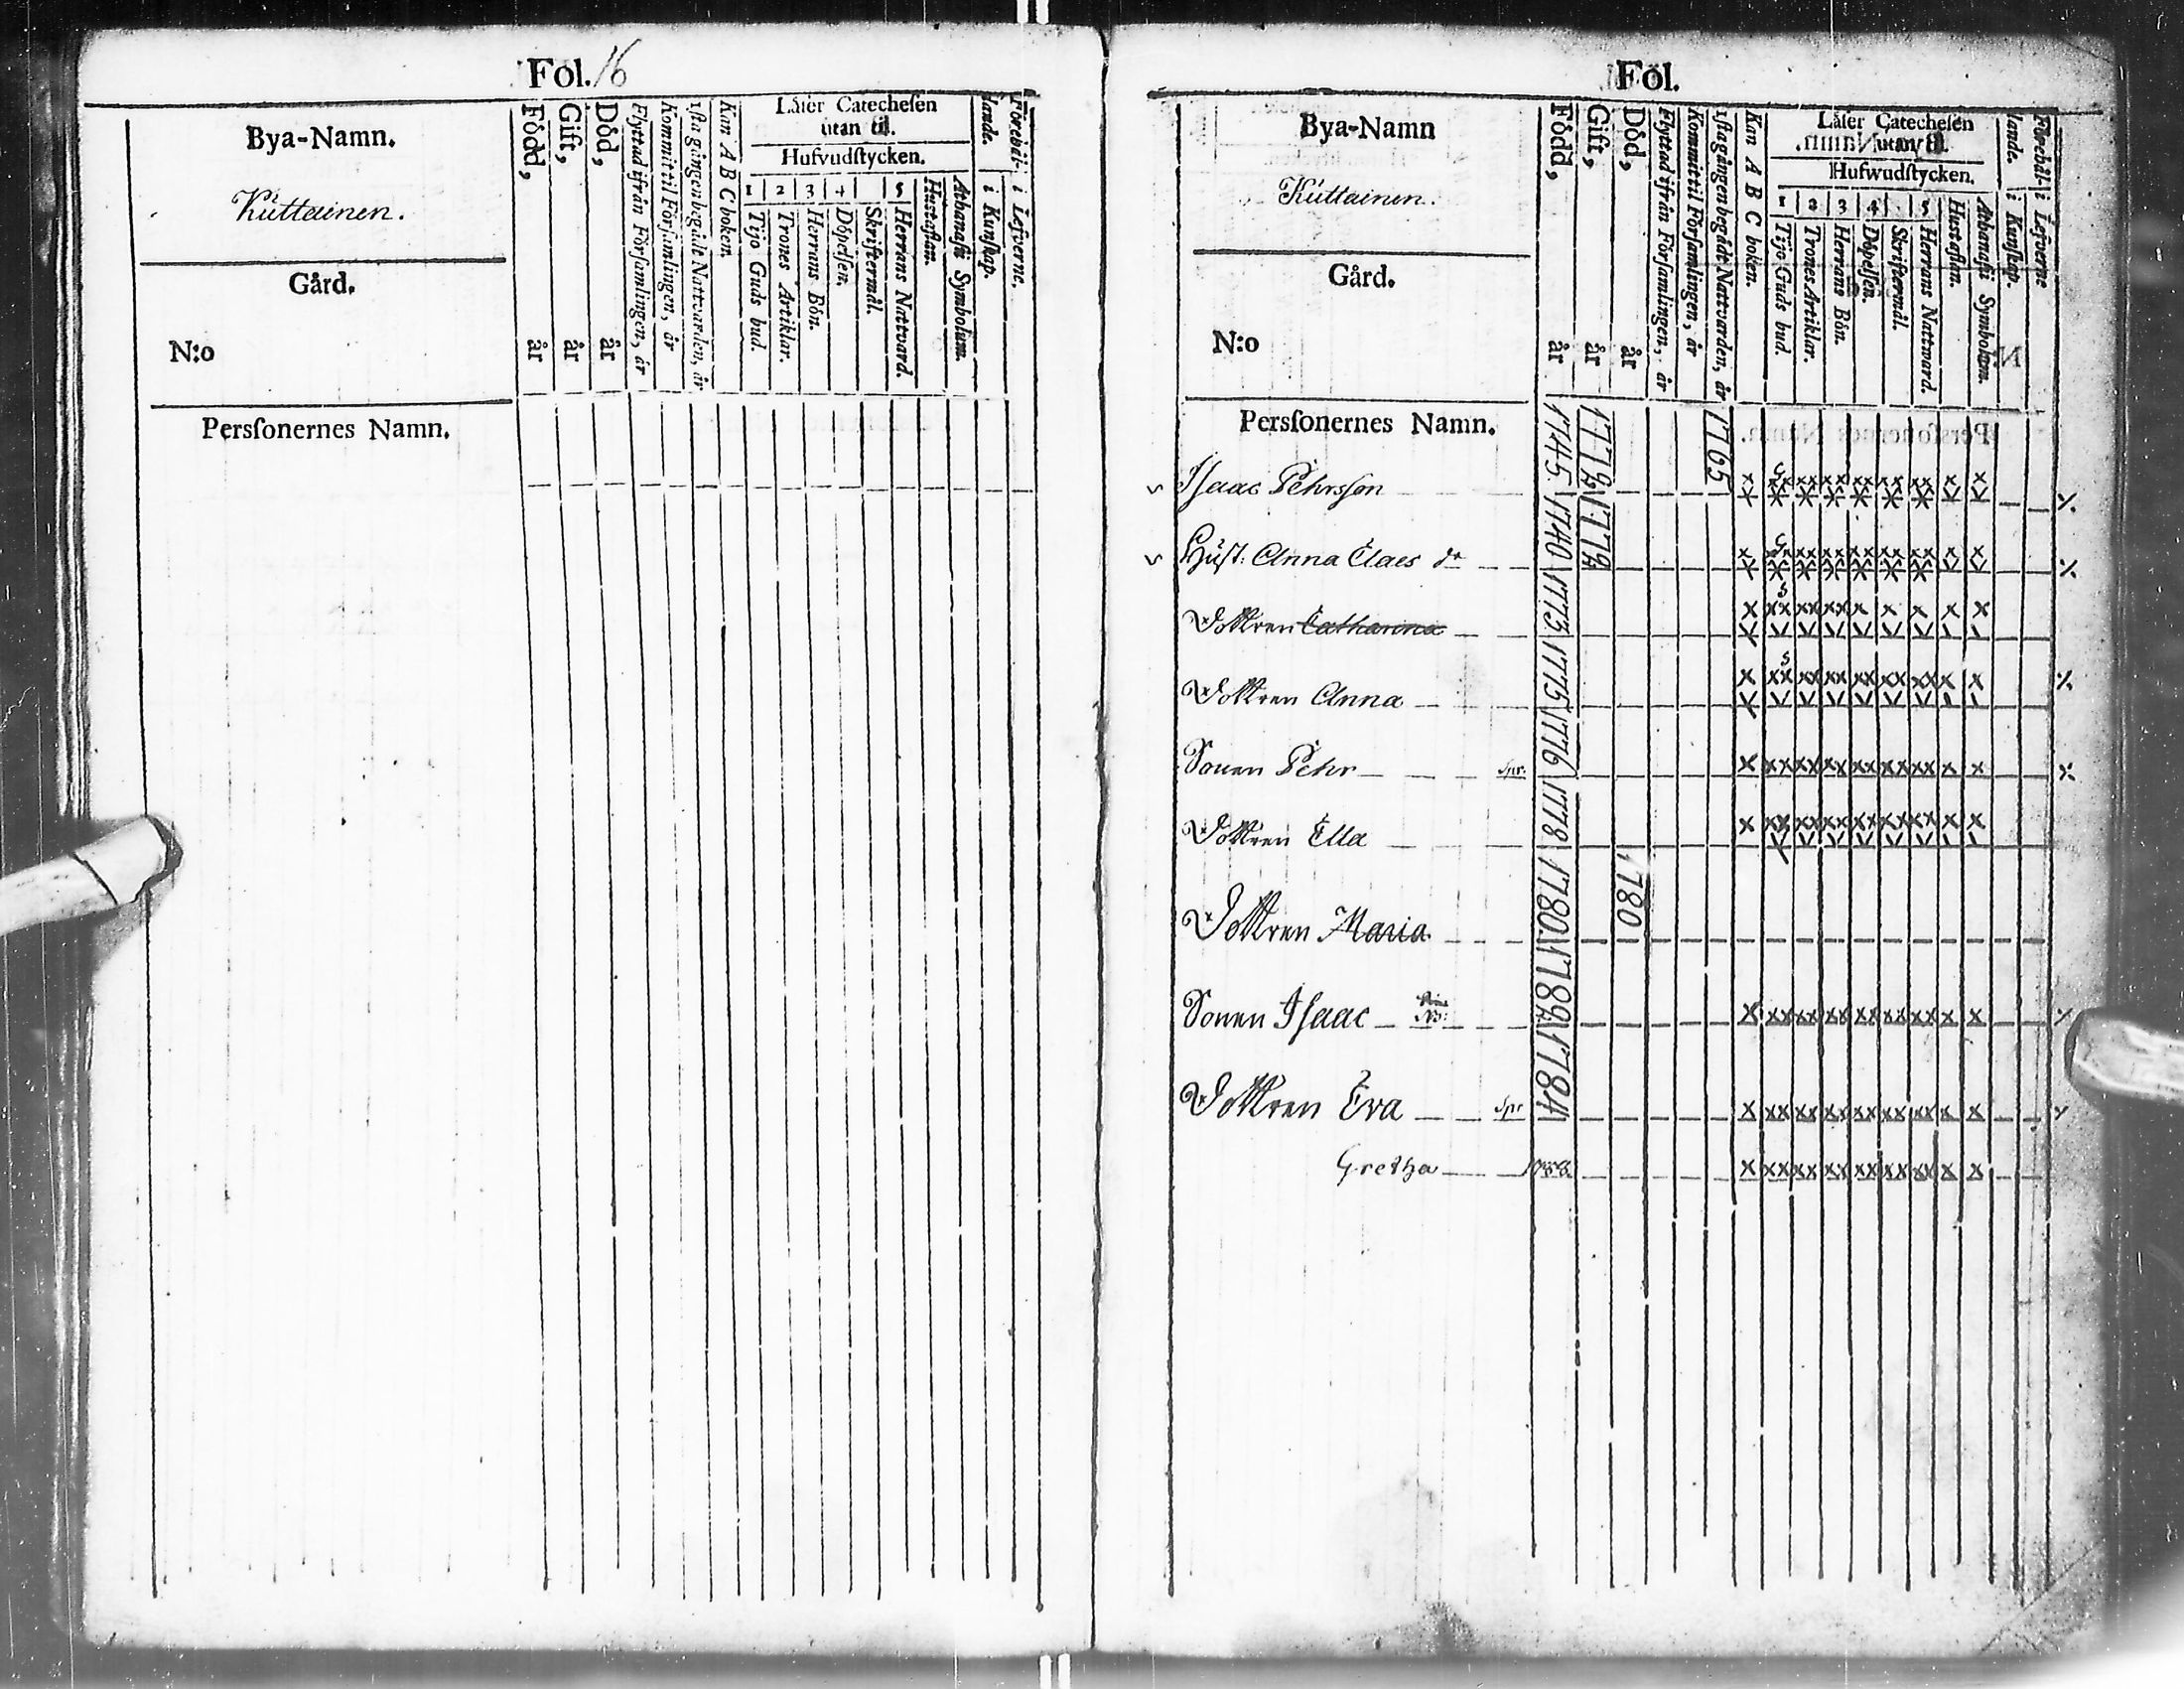 Fol. 16
Bya-Namn.
Küttainen.
Gård.
N:o
Persſonernes Namn.
Född, år
Gift, år
Död, år
Flyttad ifrån Församlingen, år
Kommit til Församlingen, år
1sta gången begådt Nattvarden, år
Kan A B C boken.
Läser Catecheſen
utan til.
Hufvudſtycken.
1 2 3 4 5
Tijo Guds bud.
Trones Artiklar.
Herrans Bön.
Döpelſen.
Skriftermål.
Herrans Nattvard.
Hustaflan.
Athanaſii Symbolum.
Förehål-
lande.
i Kunſkap.
i Lefverne.
Fol.
Bya-Namn
Küttainen.
Gård.
N:o
Persſonernes Namn.
Född, år
Gift, år
Död, år
Flyttad ifrån Församlingen, år
Kommit til Församlingen, år
1sta gången begådt Nattvarden, år
Kan A B C boken.
Läser Catecheſen
utan til.
Hufwudſtycken.
1 2 3 4 5
Tijo Guds bud.
Trones Artiklar.
Herrans Bön.
Döpelſen.
Skriftermål.
Herrans Nattward.
Hustaflan.
Athanaſii Symbolum.
Förehål-
lande.
i Kunſkap.
i Lefverne
Iſaac Pehrsſon 1745 1772 1765
Huſt: Anna Claes dr 1740 1772
Dottren Catharina 1773
Dottren Anna 1775
Sonen Pehr Spr. 1776
Dottren Ella 1778
Dottren Maria 1780 1780
Sonen Iſaac 1782
Dottren Eva Spr 1784
Gretha